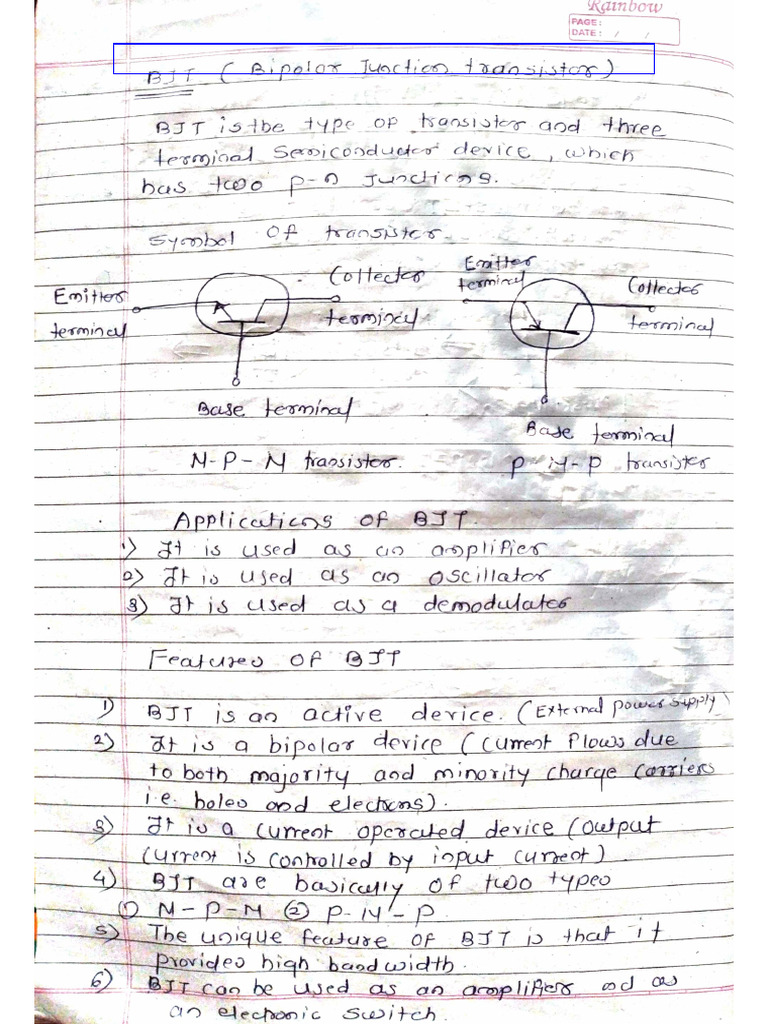 Rainbow
PAGE:
DATE: / /
BJT ( Bipolar Junction transistor)
BJT is the type of transistor and three
terminal semiconductor device, which
has two p-n Junctions.
Symbol of transistor.
Emitter terminal
Collector terminal
Base terminal
N-P-N transistor.
Emitter terminal
Collector terminal
Base terminal
P-N-P transistor
Applications of BJT.
1) It is used as an amplifier
2) It is used as an oscillator
3) It is used as a demodulator
Features of BJT
1) BJT is an active device. (External power supply)
2) It is a bipolar device (current flows due
to both majority and minority charge carriers
i.e. holes and electrons).
3) It is a current operated device (output
current is controlled by input current)
4) BJT are basically of two types
① N-P-N ② P-N-P.
5) The unique feature of BJT is that it
provides high bandwidth.
6) BJT can be used as an amplifier nd as
an electronic switch.